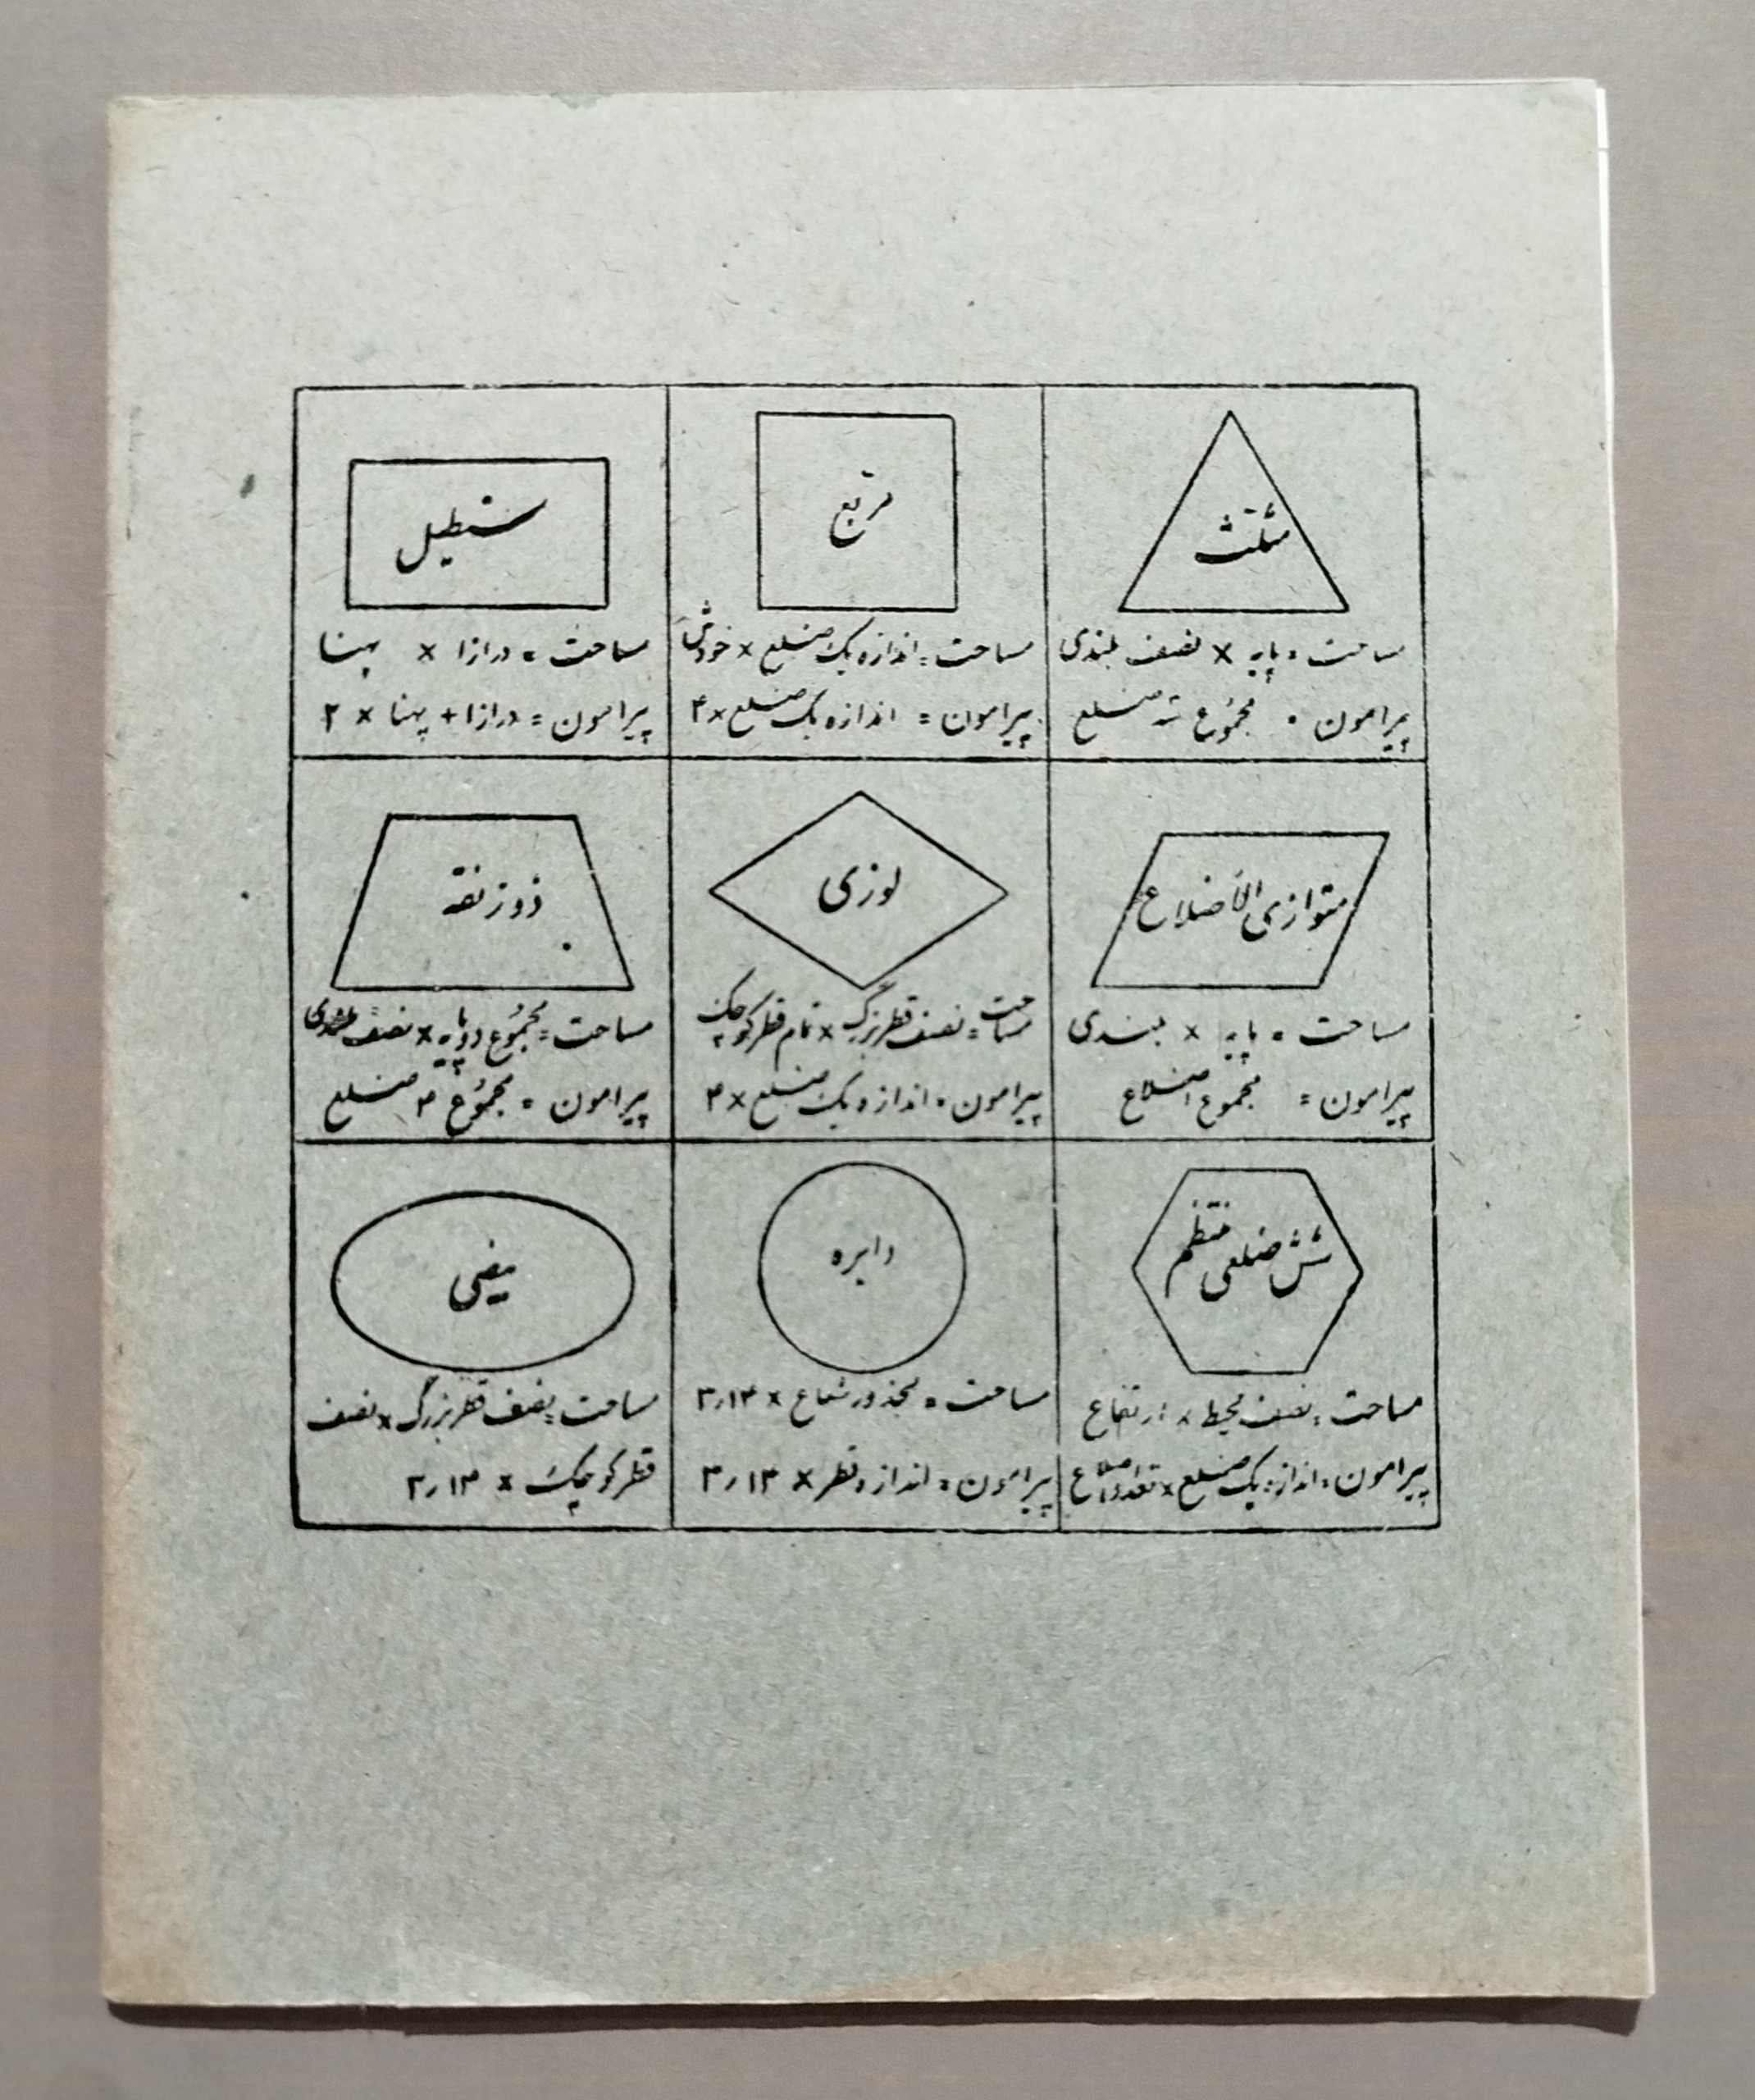 مثلث
مساحت = پایه × نصف بلندی
پیرامون = مجموع سه ضلع
مربع
مساحت = اندازه یک ضلع × خودش
پیرامون = اندازه یک ضلع × ۴
مستطیل
مساحت = درازا × پهنا
پیرامون = درازا + پهنا × ۲
متوازی الأضلاع
مساحت = پایه × بلندی
پیرامون = مجموع اضلاع
لوزی
مساحت = نصف قطر بزرگ × تمام قطر کوچک
پیرامون = اندازه یک ضلع × ۴
ذوزنقه
مساحت = مجموع دو پایه × نصف بلندی
پیرامون = مجموع ۴ ضلع
شش ضلعی منتظم
مساحت = نصف محیط × ارتفاع
پیرامون = اندازه یک ضلع × تعداد اضلاع
دایره
مساحت = مجذور شعاع × ۳٫۱۴
پیرامون = اندازه قطر × ۳٫۱۴
بیضی
مساحت = نصف قطر بزرگ × نصف
قطر کوچک × ۳٫۱۴